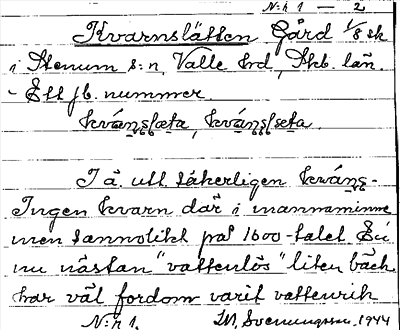 N:r 1 — 2
Kvarnslätten Gård 1/8 sk
i Stenum s:n, Valle hrd, Skb. län.
- Ett jb. nummer.
I ä. utt. säkerligen
Ingen kvarn där i mannaminne
men sannolikt på 1600-talet. En
nu nästan "vattenlös" liten bäck
har väl fordom varit vattenrik
N:r 1. 1944